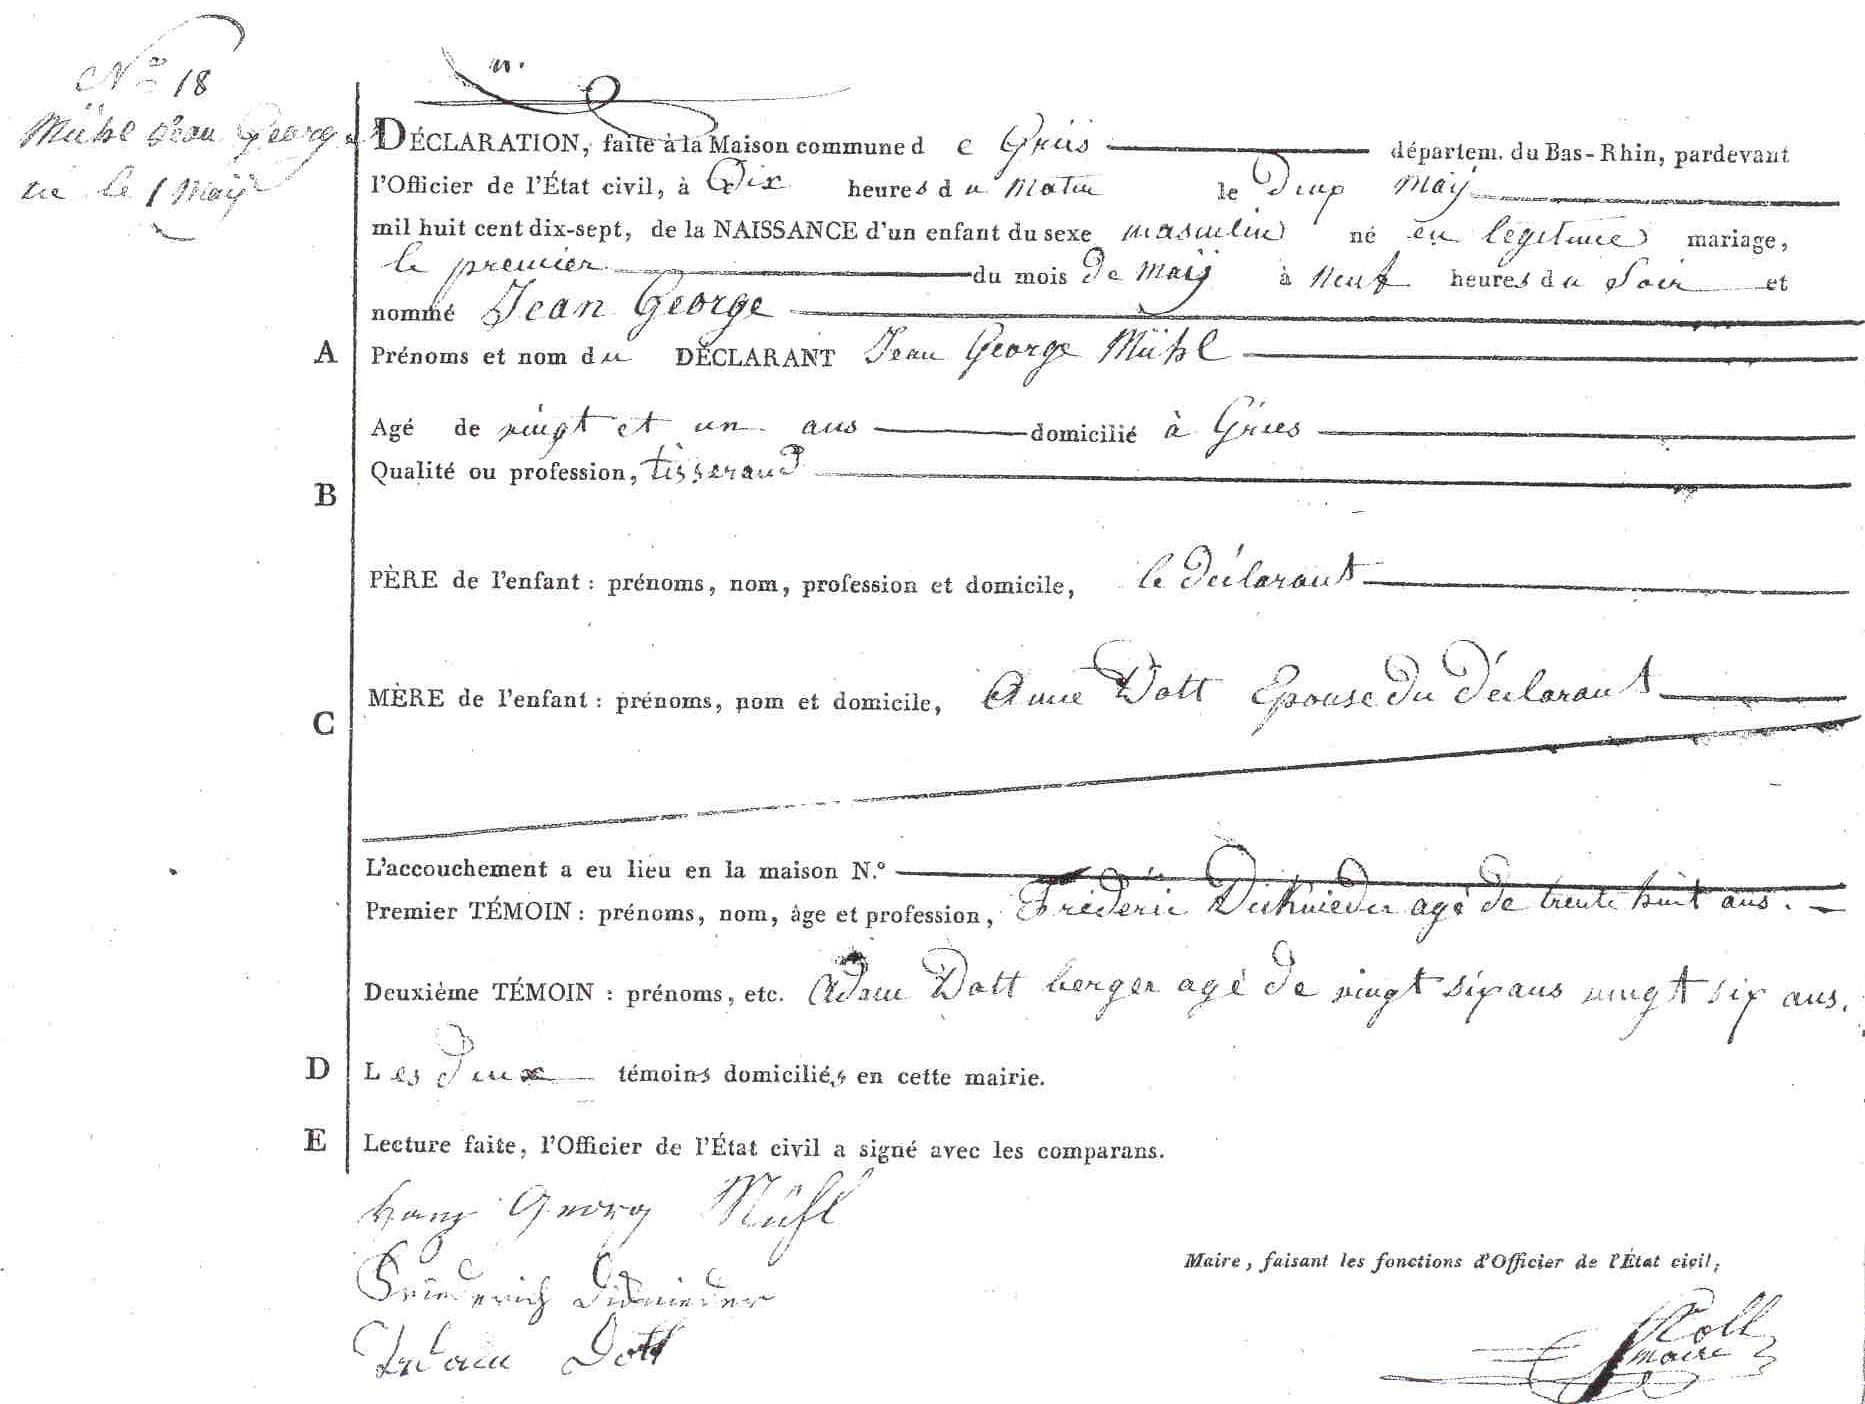 N.º 18
Mühl Jean George
né le 1 Maÿ
n.
DÉCLARATION, faite à la Maison commune d e Griis départem. du Bas-Rhin, pardevant
l'Officier de l'État civil, à Dix heures d u Matin le Deux Maÿ
mil huit cent dix-sept, de la NAISSANCE d'un enfant du sexe masculin né en légitime mariage,
le premier du mois de Maÿ à neuf heures du Soir et
nommé Jean George
A Prénoms et nom du DÉCLARANT Jean George Mühl
Agé de vingt et un ans domicilié à Gries
Qualité ou profession, tisserand
B
PÈRE de l'enfant : prénoms, nom, profession et domicile, le déclarant
MÈRE de l'enfant : prénoms, nom et domicile, Anne Dott Epouse du Déclarant
C
L'accouchement a eu lieu en la maison N.º
Premier TÉMOIN : prénoms, nom, âge et profession, Fréderic agé de trente huit ans.
Deuxième TÉMOIN : prénoms, etc. Adam Dott berger agé de vingt six ans vingt six ans.
D Les deux témoins domiciliés en cette mairie.
E Lecture faite, l'Officier de l'État civil a signé avec les comparans.
Hanz Georg Mühl
Friederich
Adam Dott
Maire, faisant les fonctions d'Officier de l'État civil,
maire